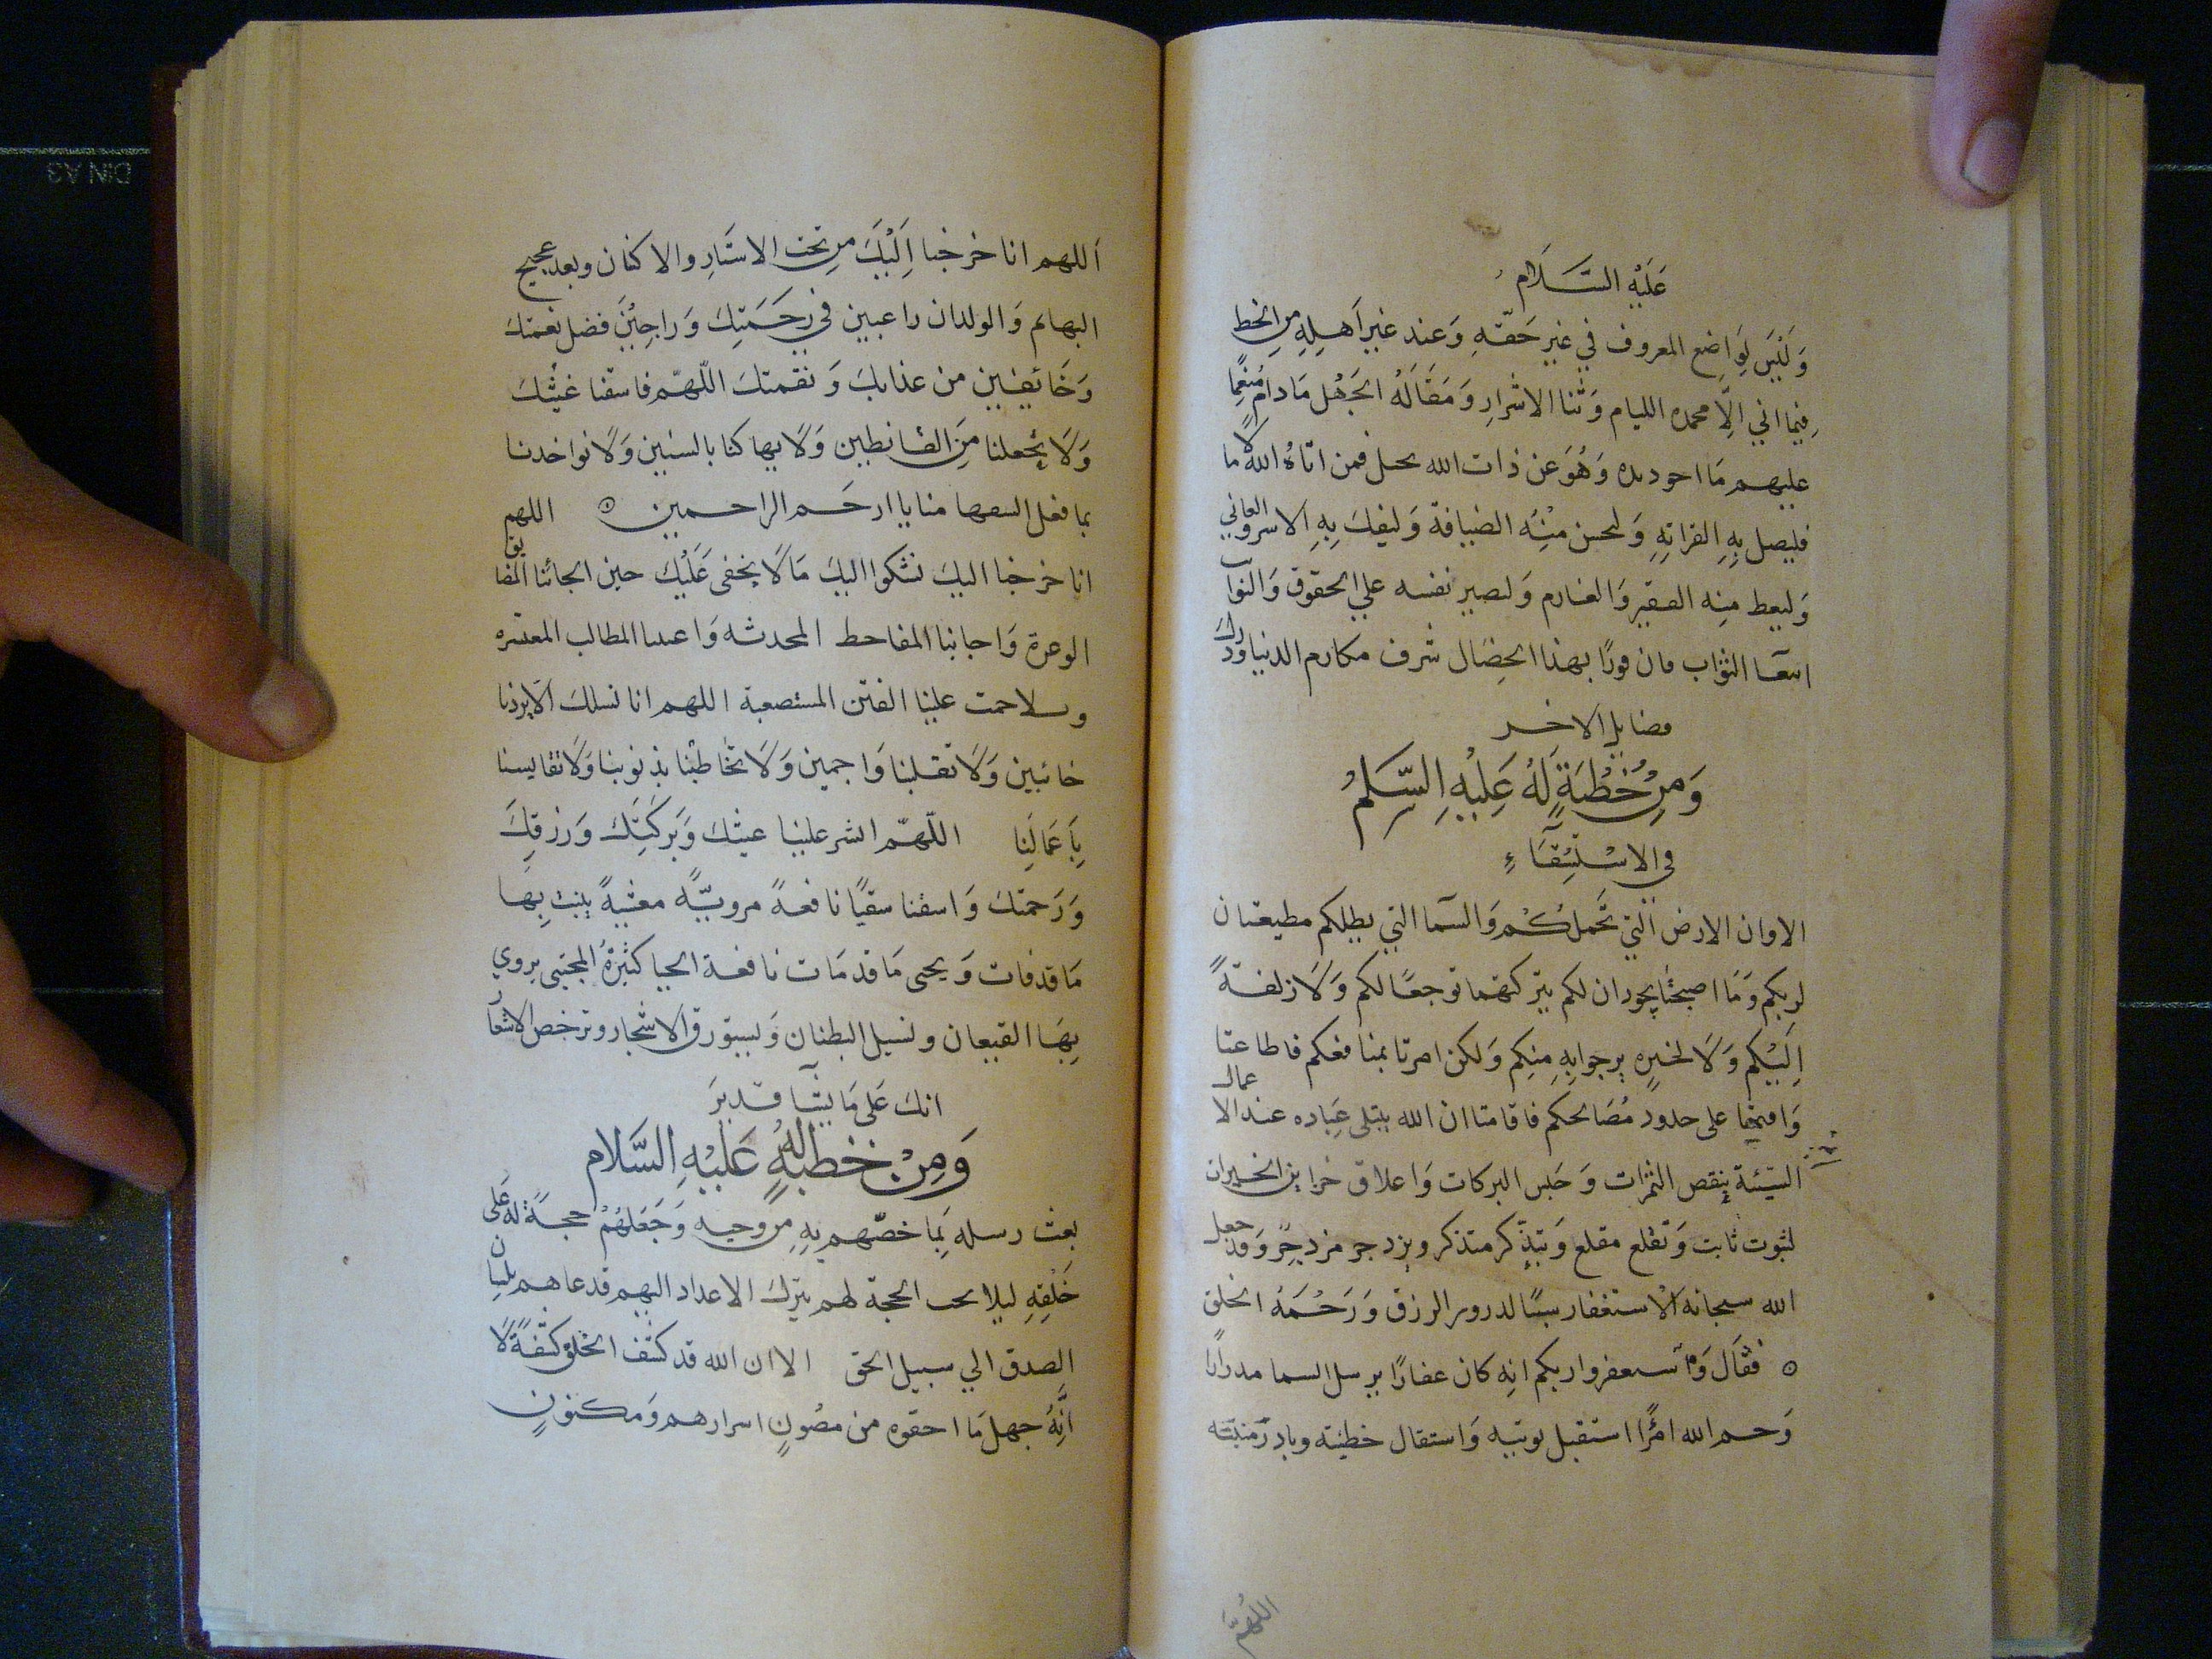 عَلَيْهِ السَّلَامُ
وَلَيْسَ لِوَاضع المعروف في غيرِ حَقّهِ وَعند غيرِ اَهلِهِ مِن الحظ
فِيما اتي اِلّا محمده الليام وَثنا الاشرارِ وَمَقَالَهُ الجَهُل مَا دام مُنعِمًا
عليهم مَا اجود يده وَهُوَ عن ذات الله بخل فمن اتاهُ اللهُ مالًا
فليصل بِهِ القرابهِ وَليحسن مِنْهُ الضيافة وَليفكَ بِهِ الاسير والعاني
وَليعط مِنه الفقير وَالغارم وَليصبر نفسه علي الحقوق وَالنوايب
ابتغا الثواب فان فوزًا بهذا الخِصَال شرف مكارم الدنيا وَدرك
فضايل الاخر
وَمِنْ خُطْبَةٍ لَهُ عَلِيْهِ السَّلَمُ
في الاسْتِسْقَاءِ
الا وان الارض التي تَحملكُم وَالسما التي تظلكم مطيعتان
لربكم وَمَا اصبحتا يجودان لكم ببركتهما توجعًا لكم وَلَا زلفةً
اِلَيْكم وَلَا لخيرٍ يرجوانِهِ مِنكم وَلكن امرتا بمنافعكم فاطاعتا
وَاقيمتا على حدود مُصَالحكم فاقامتا ان الله يبتلي عِباده عند الاعمال
السّيئة بنقص الثمرات وَحَبس البركات وَاغلاق خزاين الخيرات
ليتوب تائب وَيقلع مقلع وَيتذّكر متذكر ويزدجر مزدجِر وَقد جعل
الله سبحانه الاستغفار سببًا لدرور الرزق وَرَحْمَة الخلق
فقَال وَاستغفروا ربكم انه كان غفارًا يرسل السما مدرارًا
وَحم الله امرًا استقبل توبته وَاستقال خطيته وبادر منيته
اللهُمَّ
اَللهم انا خرجنا اِلَيْكَ مِن تحت الاستَارِ والاكنان وبعد عجيج
البهايم وَالولدان راغبين في رحَمَتِكَ وَراجِيْنَ فضل نعمتك
وَخَائِفين من عذابك وَنقمتكَ اللّهمّ فاسقنا غيثكَ
وَلَا تجعلنا مِنَ القانطين وَلَا تهلكنا بالسنين وَلَا تواخدنا
بما فعل السفها منا يا ارحَم الراحمين اللهم
انا خرجنا اليكَ نشكوا اليكَ مَا لَا يخفى عَلَيْك حين الجاتنا المضايق
الوعرة وَاجاتنا المقاحط المجدبه وَاعيتنا المطالب المعتسره
وتلاحمت علينا الفتن المستصعبة اللهم انا نسلك الا تردنا
خائبين وَلَا تقلبنا وَاجمين وَلَا تخَاطبْنا بذنوبنا وَلَا تقايسنا
بِاَعمَالَنِا اللّهمّ انشر علينا غيثك وَبَركَتِكَ وَرزقِكَ
وَرَحمتك وَاسقنا سقيًا نافعةً مرويّةً معشبةً تنبت بِهَا
مَا قد فات وَيحيى مَا قد مَات نافعة الحيا كثيرةُ المجتبى يروي
بِهَا القيعان وتسيل البطنان وَتستورق الاشجار وترخص الاسعار
انك عَلى مَا يشآ قدير
وَمِنْ خطبةٍ لهُ عَلَيْهِ السَّلام
بعث رسله بمَا خصّهم بِهِ مِن وحيه وَجَعَلهُمْ حجةً لهُ عَلى
خَلْقِهِ ليلا يجب الحجة لهم بترك الاعذار اليهم فدعاهم بلسان
الصدق الي سبيل الحق الا ان الله قد كشف الخلق كشفةً لَا
انّهُ جهل مَا اخفوه من مصُونِ اسرارهم وَمكنونِ